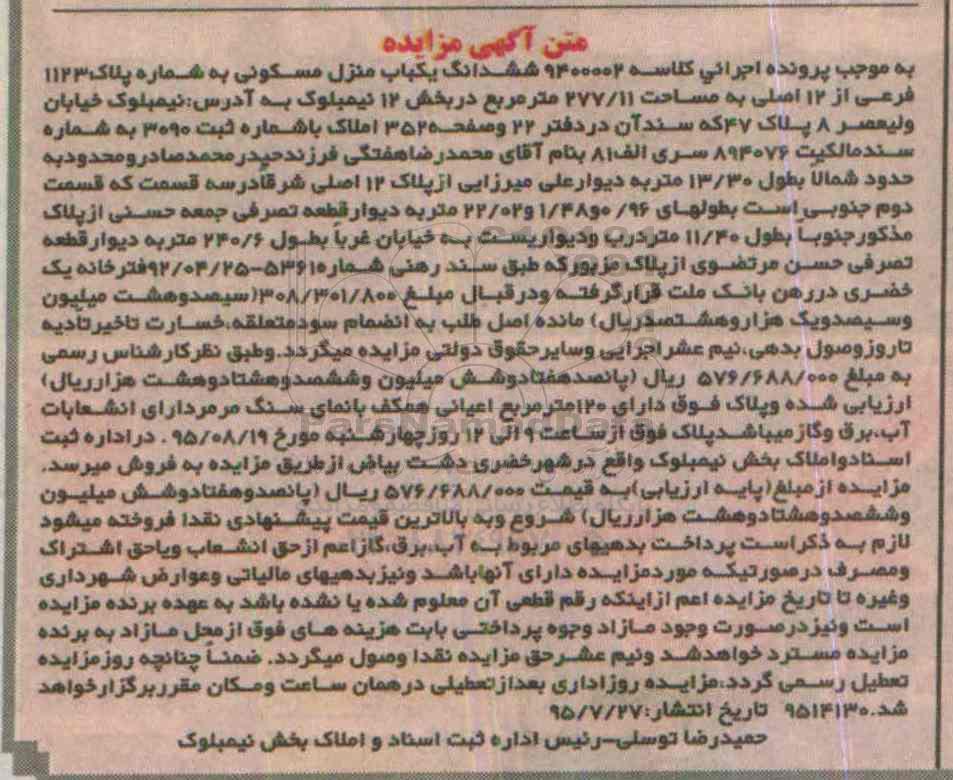 متن آگهی مزایده
به موجب پرونده اجرائي کلاسه ۹۴۰۰۰۰۲ ششدانگ یکباب منزل مسکونی به شماره پلاک۱۱۲۳
فرعی از ۱۲ اصلی به مساحت ۲۷۷/۱۱ مترمربع دربخش ۱۲ نیمبلوک به آدرس:نیمبلوک خیابان
ولیعصر ۸ پلاک ۴۷که سندآن دردفتر ۲۲ وصفحه۳۵۲ املاک باشماره ثبت ۳۰۹۰ به شماره
سندمالکیت ۸۹۴۰۷۶ سری الف۸۱ بنام آقای محمدرضاهفتگی فرزندحیدرمحمدصادرومحدودبه
حدود شمالا بطول ۱۳/۳۰ متربه دیوارعلی میرزایی ازپلاک ۱۲ اصلی شرقاًدرسه قسمت که قسمت
دوم جنوبی است بطولهای ۰/۹۶ و۱/۴۸ و۲۲/۰۲ متربه دیوارقطعه تصرفی جمعه حسنی ازپلاک
مذکورجنوبا بطول ۱۱/۴۰ متردرب ودیواریست به خیابان غرباً بطول ۲۴۰/۶ متربه دیوارقطعه
تصرفی حسن مرتضوی ازپلاک مزبورکه طبق سند رهنی شماره۵۳۶۱-۹۲/۰۴/۲۵فترخانه یک
خضری دررهن بانک ملت قرارگرفته ودرقبال مبلغ ۳۰۸/۳۰۱/۸۰۰(سیصدوهشت میلیون
وسیصدویک هزاروهشتصدریال) مانده اصل طلب به انضمام سودمتعلقه،خسارت تاخیرتادیه
تاروزوصول بدهی،نیم عشراجرایی وسایرحقوق دولتی مزایده میگردد.وطبق نظرکارشناس رسمی
به مبلغ ۵۷۶/۶۸۸/۰۰۰ ریال (پانصدهفتادوشش میلیون وششصدوهشتادوهشت هزارریال)
ارزیابی شده وپلاک فوق دارای ۱۲۰مترمربع اعیانی همکف بانمای سنگ مرمردارای انشعابات
آب،برق وگازمیباشدپلاک فوق ازساعت ۹ الی ۱۲ روزچهارشنبه مورخ ۹۵/۰۸/۱۹ . دراداره ثبت
اسنادواملاک بخش نیمبلوک واقع درشهرخضری دشت بیاض ازطریق مزایده به فروش میرسد.
مزایده ازمبلغ(پایه ارزیابی)به قیمت ۵۷۶/۶۸۸/۰۰۰ ریال (پانصدوهفتادوشش میلیون
وششصدوهشتادوهشت هزارریال) شروع وبه بالاترین قیمت پیشنهادی نقدا فروخته میشود
لازم به ذکراست پرداخت بدهیهای مربوط به آب،برق،گازاعم ازحق انشعاب ویاحق اشتراک
ومصرف درصورتیکه موردمزایده دارای آنهاباشد ونیزبدهیهای مالیاتی وعوارض شهرداری
وغیره تا تاریخ مزایده اعم ازاینکه رقم قطعی آن معلوم شده یا نشده باشد به عهده برنده مزایده
است ونیزدرصورت وجود مازاد وجوه پرداختی بابت هزینه های فوق ازمحل مازاد به برنده
مزایده مسترد خواهدشد ونیم عشرحق مزایده نقدا وصول میگردد. ضمناً چنانچه روزمزایده
تعطیل رسمی گردد،مزایده روزاداری بعدازتعطیلی درهمان ساعت ومکان مقرربرگزارخواهد
شد.۹۵۱۴۱۳۰ تاریخ انتشار:۹۵/۷/۲۷
حمیدرضا توسلی-رئیس اداره ثبت اسناد و املاک بخش نیمبلوک